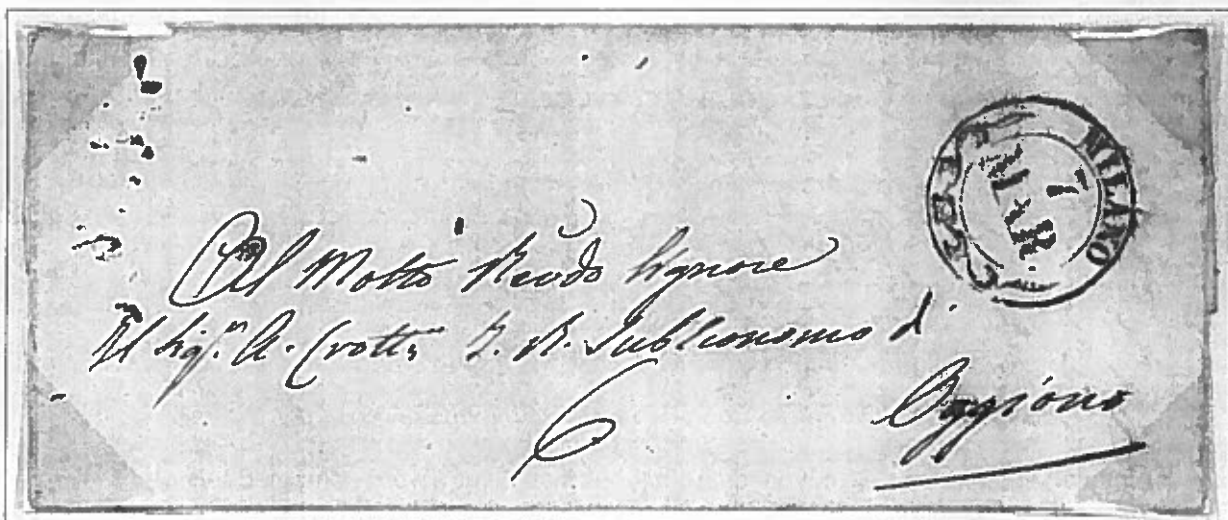 MILANO
Al Molto Revdo Signore
Al Sigr. A. Crotta I. R. SubEconomo di
6
Oggiono